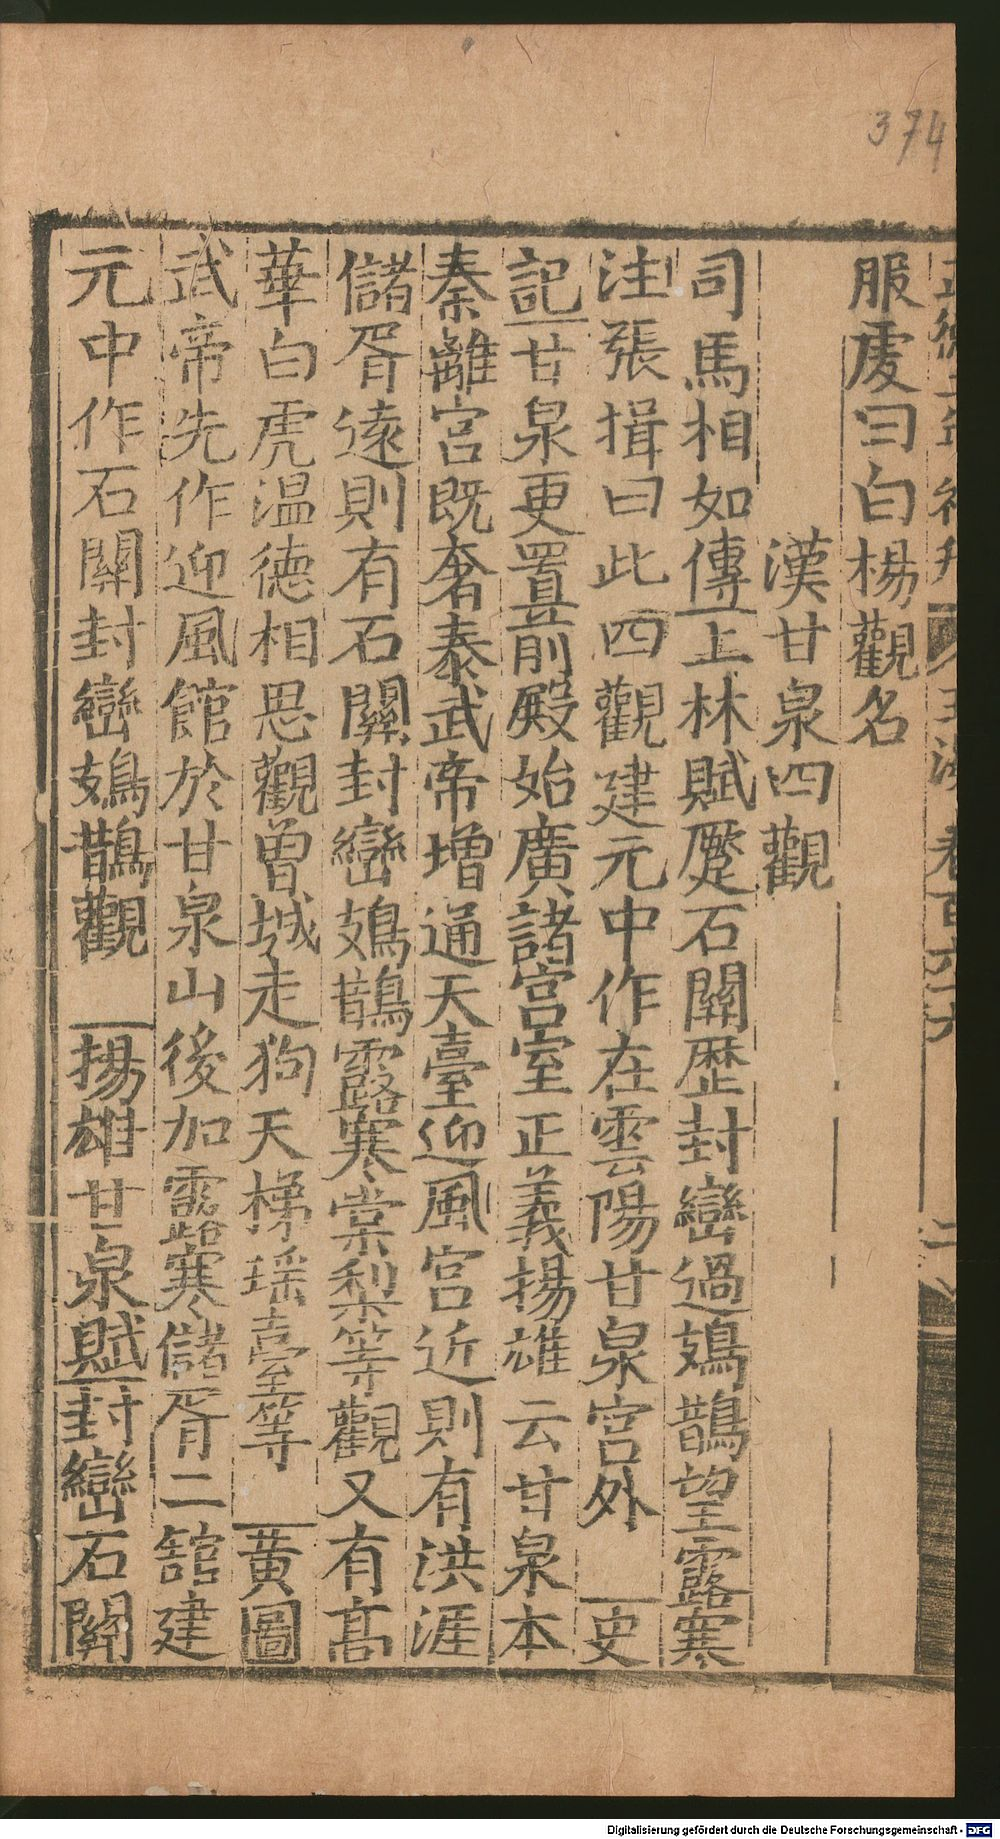 374
服虔曰白楊觀名
漢甘泉四觀
司馬相如傳上林賦蹷石關歷封巒過鳷鵲望露寒
注張揖曰此四觀建元中作在雲陽甘泉宮外 史
記甘泉更置前殿始廣諸宮室正義揚雄云甘泉本
秦離宮既奢泰武帝增通天臺迎風宮近則有洪涯
儲胥遠則有石關封巒鳷鵲露寒棠梨等觀又有高
華白虎温德相思觀曽城走狗天梯瑶臺等 黃圖
武帝先作迎風館於甘泉山後加露寒儲胥二館建
元中作石關封巒鳷鵲觀 揚雄甘泉賦封巒石關
Digitalisierung gefördert durch die Deutsche Forschungsgemeinschaft - DFG